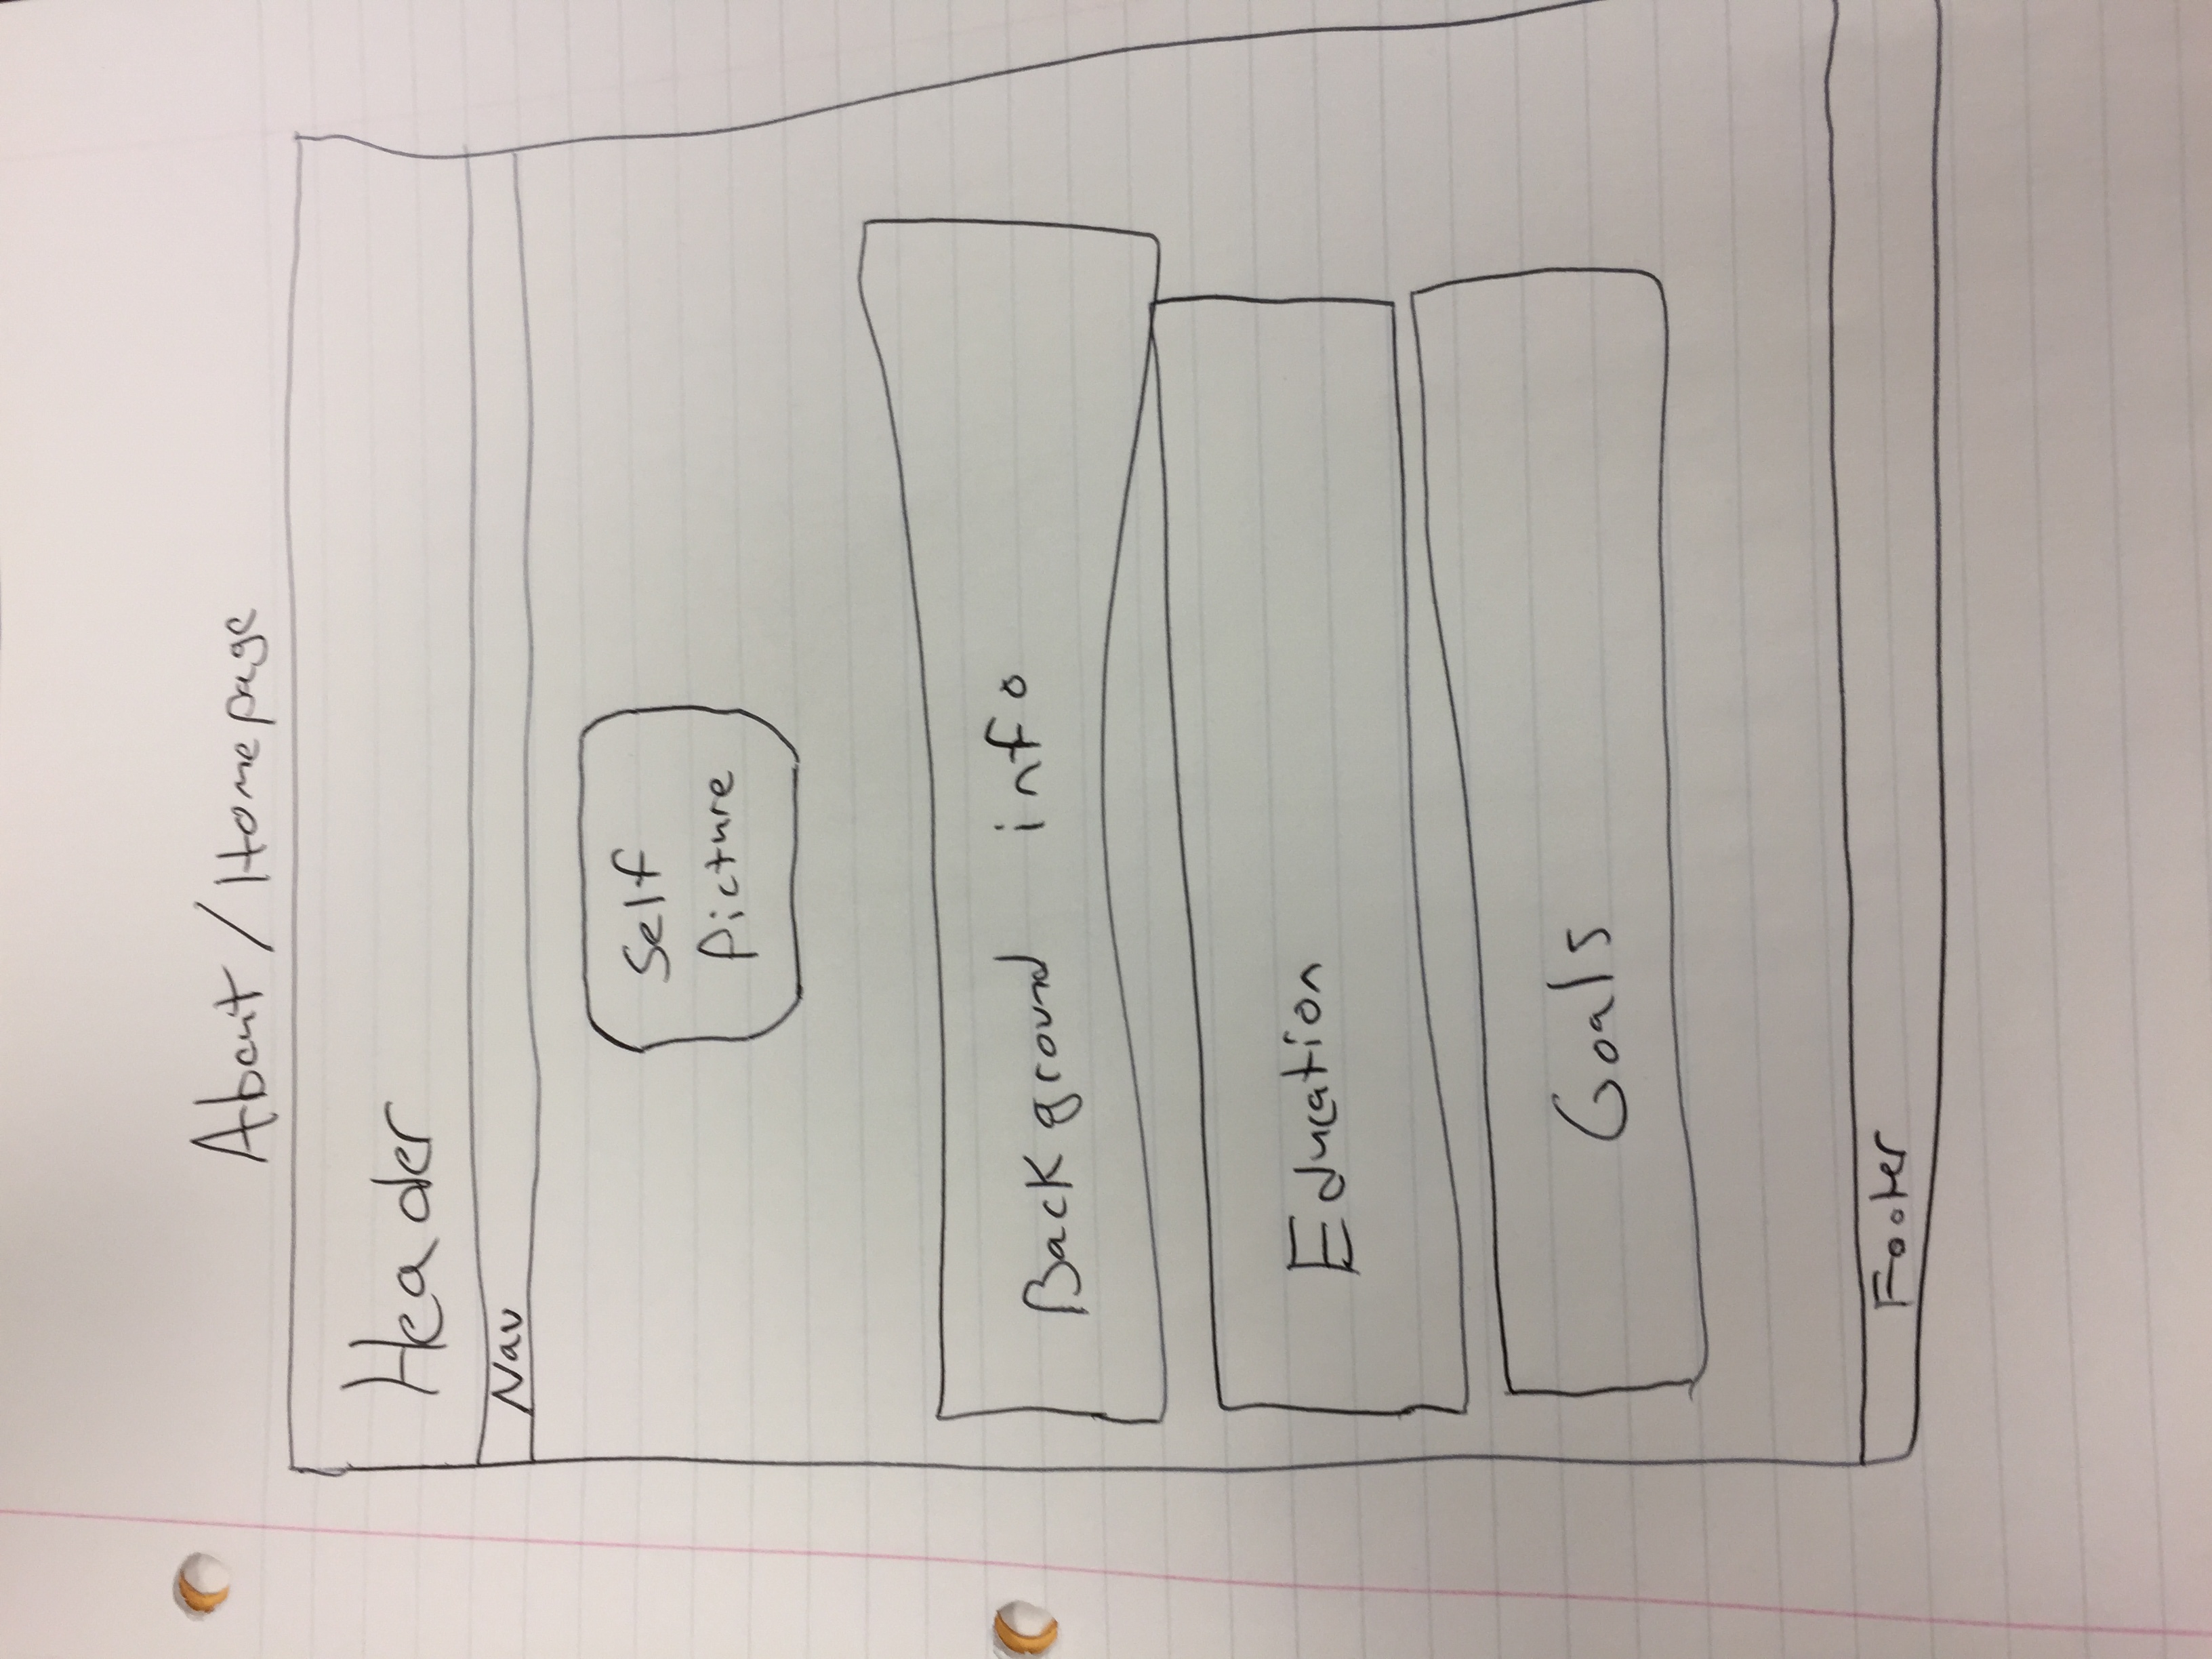 About / Homepage
Header
Nav
Self
Picture
Background info
Education
Goals
Footer